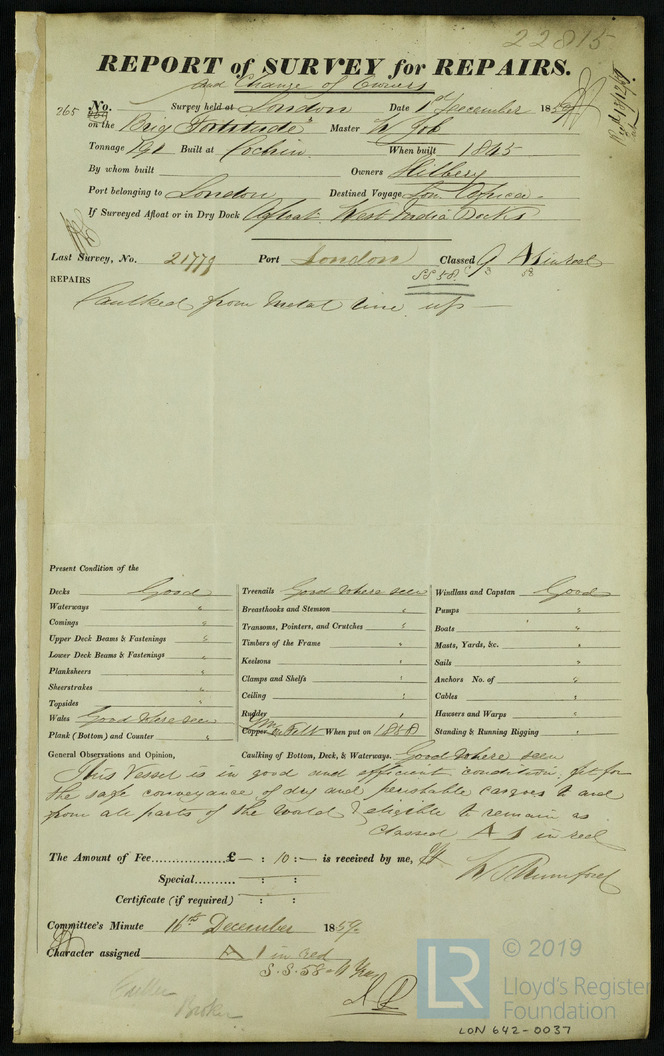 22815
REPORT of SURVEY for REPAIRS.
and Change of Owners
265 No. Survey held at London Date 1st December 1859
on the Brig "Fortitude" Master W Job
Tonnage Built at Cochin When built 1845
By whom built Owners Hilbery
Port belonging to London Destined Voyage Lon Africa
If Surveyed Afloat or in Dry Dock Afloat West India Docks
Last Survey, No. 21779 Port London Classed 9 A1 in red
SS 58 3 58
REPAIRS
Caulked from metal line up —
Present Condition of the
Decks Good
Waterways "
Comings "
Upper Deck Beams & Fastenings "
Lower Deck Beams & Fastenings "
Planksheers "
Sheerstrakes "
Topsides "
Wales Good where seen
Plank (Bottom) and Counter "
Treenails Good where seen
Breasthooks and Stemson "
Transoms, Pointers, and Crutches "
Timbers of the Frame "
Keelsons "
Clamps and Shelfs "
Ceiling "
Rudder "
Copper YM on Felt When put on 1858
Caulking of Bottom, Deck, & Waterways. Good where seen
Windlass and Capstan Good
Pumps "
Boats "
Masts, Yards, &c. "
Sails "
Anchors No. of "
Cables "
Hawsers and Warps "
Standing & Running Rigging "
General Observations and Opinion,
This Vessel is in good and efficient condition, fit for
the safe conveyance of dry and perishable cargoes to and
from all parts of the World & eligible to remain as
classed A 1 in red
The Amount of Fee................£ — : 10 : — is received by me,
W Mumford
Special......... : :
Certificate (if required) : :
Committee's Minute 16th December 1859
Character assigned A 1 in red
S.S. 58 - 4 Yrs
Fuller
Broker
LR © 2019
Lloyd's Register
Foundation
LON 642-0037